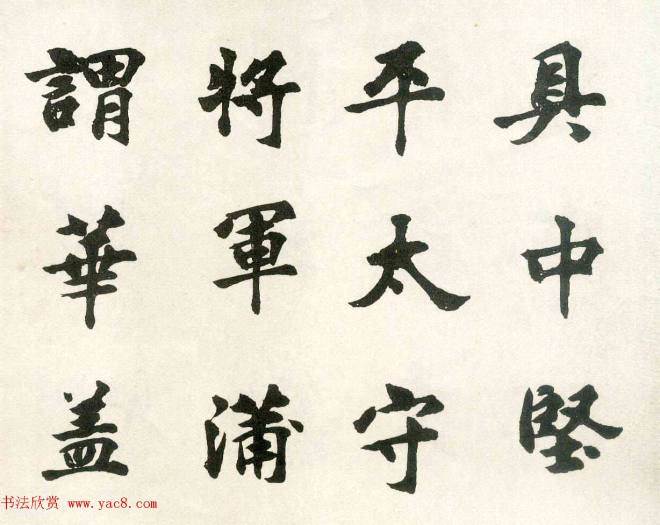 具中堅
平太守
將軍蒲
謂華盖
书法欣赏 www.yac8.com